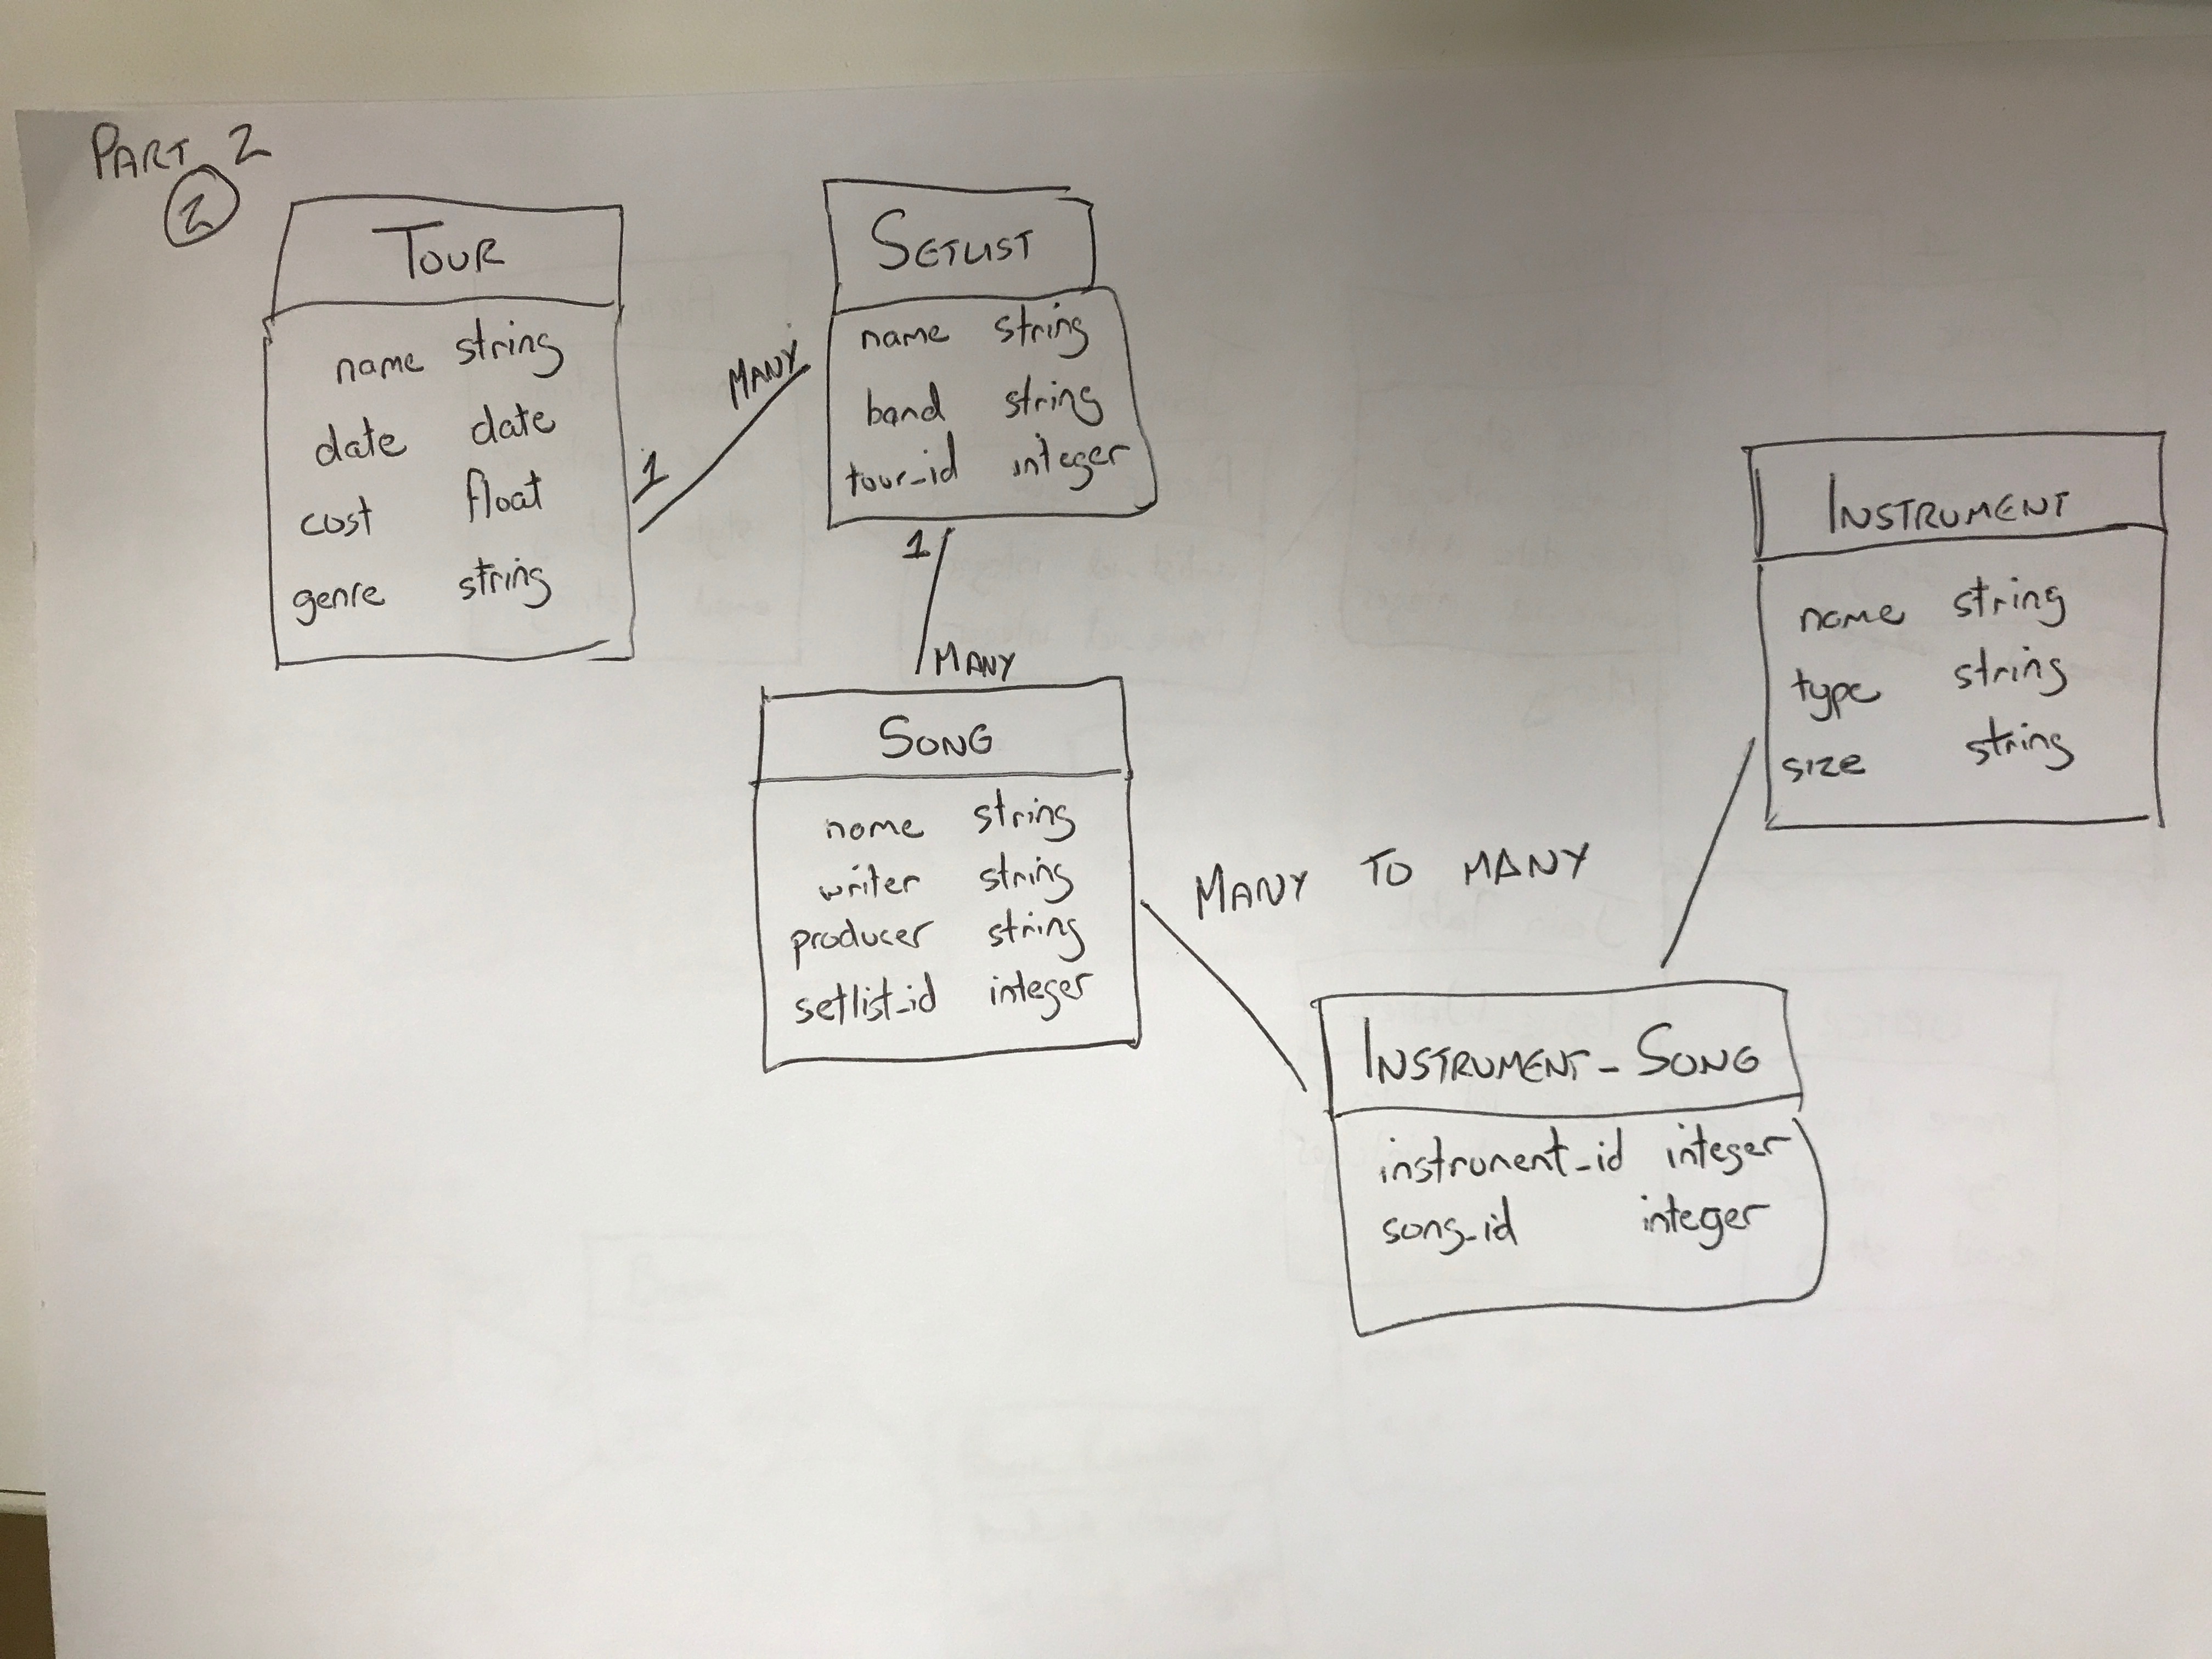 PART 2
2
TOUR
name string
date date
cost float
genre string
1
MANY
SETLIST
name string
band string
tour_id integer
1
MANY
SONG
name string
writer string
producer string
setlist_id integer
MANY TO MANY
INSTRUMENT
name string
type string
size string
INSTRUMENT_SONG
instrument_id integer
song_id integer